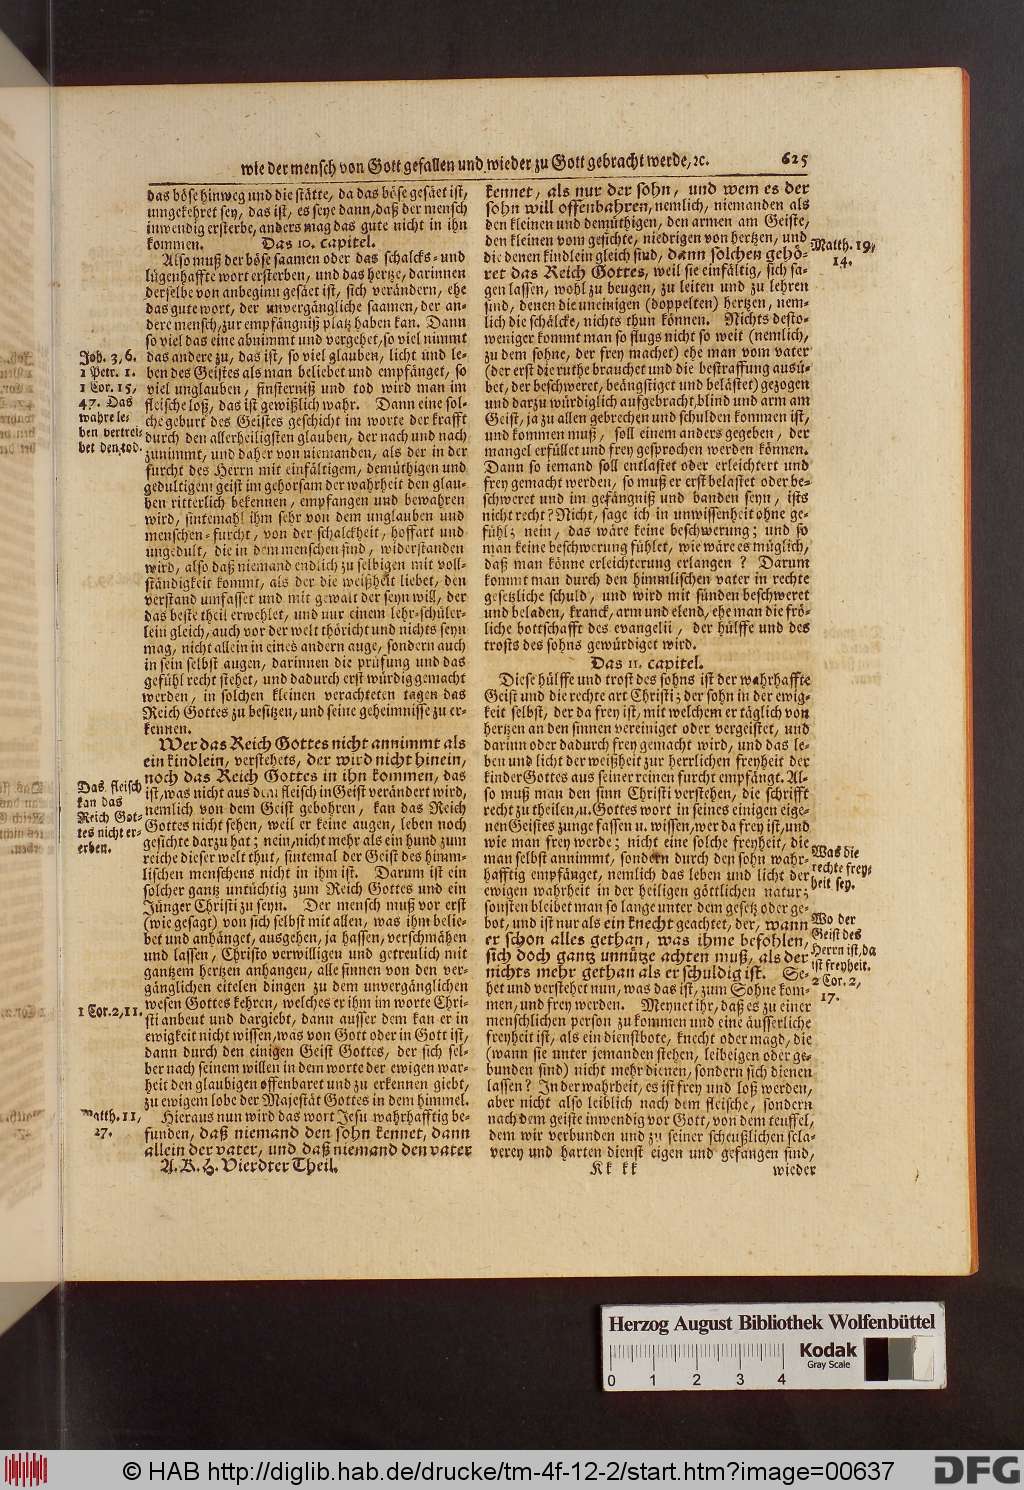 wie der mensch von Gott gefallen und wieder zu Gott gebracht werde, ꝛc. 625
das böse hinweg und die stätte, da das böse gesäet ist,
umgekehret sey, das ist, es seye dann, daß der mensch
inwendig ersterbe, anders mag das gute nicht in ihn
kommen. Das 10. capitel.
Also muß der böse saamen oder das schalcks- und
lügenhaffte wort ersterben, und das hertze, darinnen
derselbe von anbeginn gesäet ist, sich verändern, ehe
das gute wort, der unvergängliche saamen, der an-
dere mensch, zur empfängniß platz haben kan. Dann
so viel das eine abnimmt und vergehet, so viel nimmt
das andere zu, das ist, so viel glauben, licht und le-
ben des Geistes als man beliebet und empfänget, so
viel unglauben, finsterniß und tod wird man im
fleische loß, das ist gewißlich wahr. Dann eine sol-
che geburt des Geistes geschicht im worte der krafft
durch den allerheiligsten glauben, der nach und nach
zunimmt, und daher von niemanden, als der in der
furcht des Herrn mit einfältigem, demüthigen und
gedultigem geist im gehorsam der wahrheit den glau-
ben ritterlich bekennen, empfangen und bewahren
wird, sintemahl ihm sehr von dem unglauben und
menschen-furcht, von der schalckheit, hoffart und
ungedult, die in dem menschen sind, widerstanden
wird, also daß niemand endlich zu selbigen mit voll-
ständigkeit kommt, als der die weißheit liebet, den
verstand umfasset und mit gewalt der seyn will, der
das beste theil erwehlet, und nur einem lehr-schüler-
lein gleich, auch vor der welt thöricht und nichts seyn
mag, nicht allein in eines andern auge, sondern auch
in sein selbst augen, darinnen die prüfung und das
gefühl recht stehet, und dadurch erst würdig gemacht
werden, in solchen kleinen verachteten tagen das
Reich Gottes zu besitzen, und seine geheimnisse zu er-
kennen.
Wer das Reich Gottes nicht annimmt als
ein kindlein, verstehets, der wird nicht hinein,
noch das Reich Gottes in ihn kommen, das
ist, was nicht aus dem fleisch in Geist verändert wird,
nemlich von dem Geist gebohren, kan das Reich
Gottes nicht sehen, weil er keine augen, leben noch
gesichte darzu hat; nein, nicht mehr als ein hund zum
reiche dieser welt thut, sintemal der Geist des himm-
lischen menschens nicht in ihm ist. Darum ist ein
solcher gantz untüchtig zum Reich Gottes und ein
Jünger Christi zu seyn. Der mensch muß vor erst
(wie gesagt) von sich selbst mit allen, was ihm belie-
bet und anhänget, ausgehen, ja hassen, verschmähen
und lassen, Christo verwilligen und getreulich mit
gantzem hertzen anhangen, alle sinnen von den ver-
gänglichen eitelen dingen zu dem unvergänglichen
wesen Gottes kehren, welches er ihm im worte Chri-
sti anbeut und dargiebt, dann ausser dem kan er in
ewigkeit nicht wissen, was von Gott oder in Gott ist,
dann durch den einigen Geist Gottes, der sich sel-
ber nach seinem willen in dem worte der ewigen war-
heit den glaubigen offenbaret und zu erkennen giebt,
zu ewigem lobe der Majestät Gottes in dem himmel.
Hieraus nun wird das wort Jesu wahrhafftig be-
funden, daß niemand den sohn kennet, dann
allein der vater, und daß niemand den vater
A. K. H. Vierdter Theil.
Joh. 3, 6.
1 Petr. 1.
1 Cor. 15,
47. Das
wahre le-
ben vertrei-
bet den tod.
Das fleisch
kan das
Reich Got-
tes nicht er-
erben.
1 Cor. 2, 11.
Matth. 11,
27.
kennet, als nur der sohn, und wem es der
sohn will offenbahren, nemlich, niemanden als
den kleinen und demüthigen, den armen am Geiste,
den kleinen vom gesichte, niedrigen von hertzen, und
die denen kindlein gleich sind, dann solchen gehö-
ret das Reich Gottes, weil sie einfältig, sich sa-
gen lassen, wohl zu beugen, zu leiten und zu lehren
sind, denen die uneinigen (doppelten) hertzen, nem-
lich die schälcke, nichts thun können. Nichts desto-
weniger kommt man so flugs nicht so weit (nemlich,
zu dem sohne, der frey machet) ehe man vom vater
(der erst die ruthe brauchet und die bestraffung ausü-
bet, der beschweret, beängstiget und belästet) gezogen
und darzu würdiglich aufgebracht, blind und arm am
Geist, ja zu allen gebrechen und schulden kommen ist,
und kommen muß, soll einem anders gegeben, der
mangel erfüllet und frey gesprochen werden können.
Dann so iemand soll entlastet oder erleichtert und
frey gemacht werden, so muß er erst belastet oder be-
schweret und im gefängniß und banden seyn, ists
nicht recht? Nicht, sage ich in unwissenheit ohne ge-
fühl; nein, das wäre keine beschwerung; und so
man keine beschwerung fühlet, wie wäre es müglich,
daß man könne erleichterung erlangen? Darum
kommt man durch den himmlischen vater in rechte
gesetzliche schuld, und wird mit sünden beschweret
und beladen, kranck, arm und elend, ehe man die frö-
liche bottschafft des evangelii, der hülffe und des
trosts des sohns gewürdiget wird.
Das 11. capitel.
Diese hülffe und trost des sohns ist der wahrhaffte
Geist und die rechte art Christi; der sohn in der ewig-
keit selbst, der da frey ist, mit welchem er täglich von
hertzen an den sinnen vereiniget oder vergeistet, und
darinn oder dadurch frey gemacht wird, und das le-
ben und licht der weißheit zur herrlichen freyheit der
kinder Gottes aus seiner reinen furcht empfängt. Al-
so muß man den sinn Christi verstehen, die schrifft
recht zu theilen, u. Gottes wort in seines einigen eige-
nen Geistes zunge fassen u. wissen, wer da frey ist, und
wie man frey werde; nicht eine solche freyheit, die
man selbst annimmt, sondern durch den sohn wahr-
hafftig empfänget, nemlich das leben und licht der
ewigen wahrheit in der heiligen göttlichen natur;
sonsten bleibet man so lange unter dem gesetz oder ge-
bot, und ist nur als ein knecht geachtet, der, wann
er schon alles gethan, was ihme befohlen,
sich doch gantz unnütze achten muß, als der
nichts mehr gethan als er schuldig ist. Se-
het und verstehet nun, was das ist, zum Sohne kom-
men, und frey werden. Meynet ihr, daß es zu einer
menschlichen person zu kommen und eine äusserliche
freyheit ist, als ein dienstbote, knecht oder magd, die
(wann sie unter jemanden stehen, leibeigen oder ge-
bunden sind) nicht mehr dienen, sondern sich dienen
lassen? In der wahrheit, es ist frey und loß werden,
aber nicht also leiblich nach dem fleische, sondern
nach dem geiste inwendig vor Gott, von dem teuffel,
dem wir verbunden und zu seiner scheußlichen scla-
verey und harten dienst eigen und gefangen sind,
Kk kk wieder
Matth. 19,
14.
Was die
rechte frey-
heit sey.
Wo der
Geist des
Herrn ist, da
ist freyheit.
2 Cor. 2,
17.
Herzog August Bibliothek Wolfenbüttel
Kodak
Gray Scale
0 1 2 3 4
© HAB http://diglib.hab.de/drucke/tm-4f-12-2/start.htm?image=00637
DFG